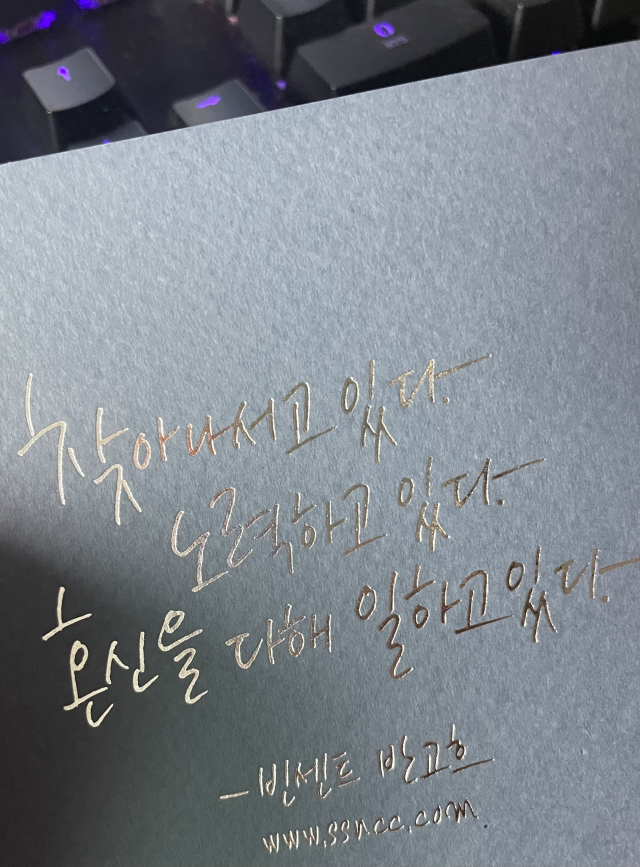 찾아나서고 있다.
노력하고 있다.
혼신을 다해 일하고 있다.
-빈센트 반고흐
www.ssncc.com